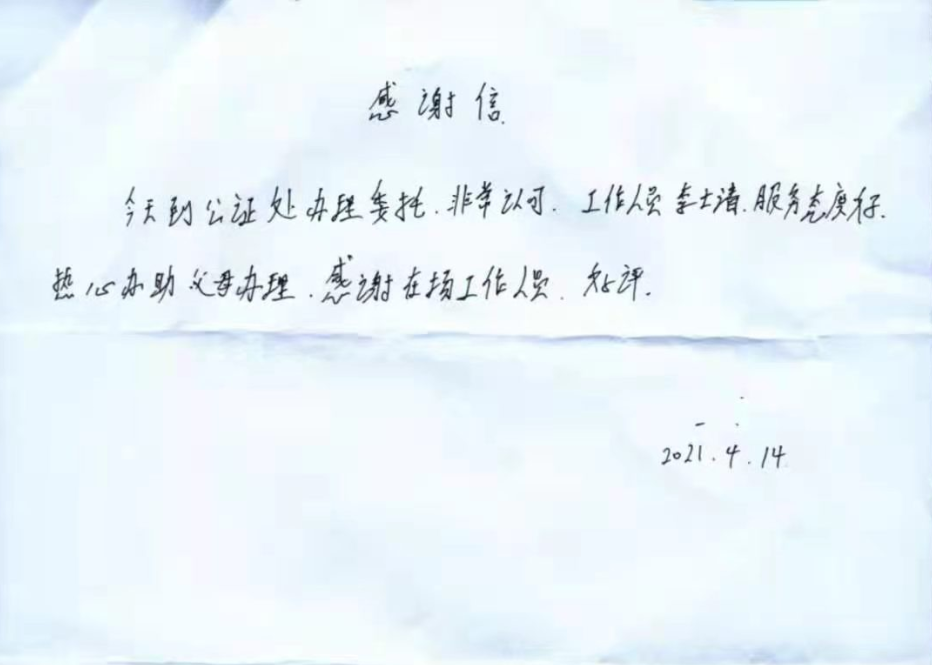 感谢信
今天到公证处办理委托、非常认可、工作人员李士清、服务态度好、
热心办助父母办理、感谢在场工作人员、好评.
2021.4.14